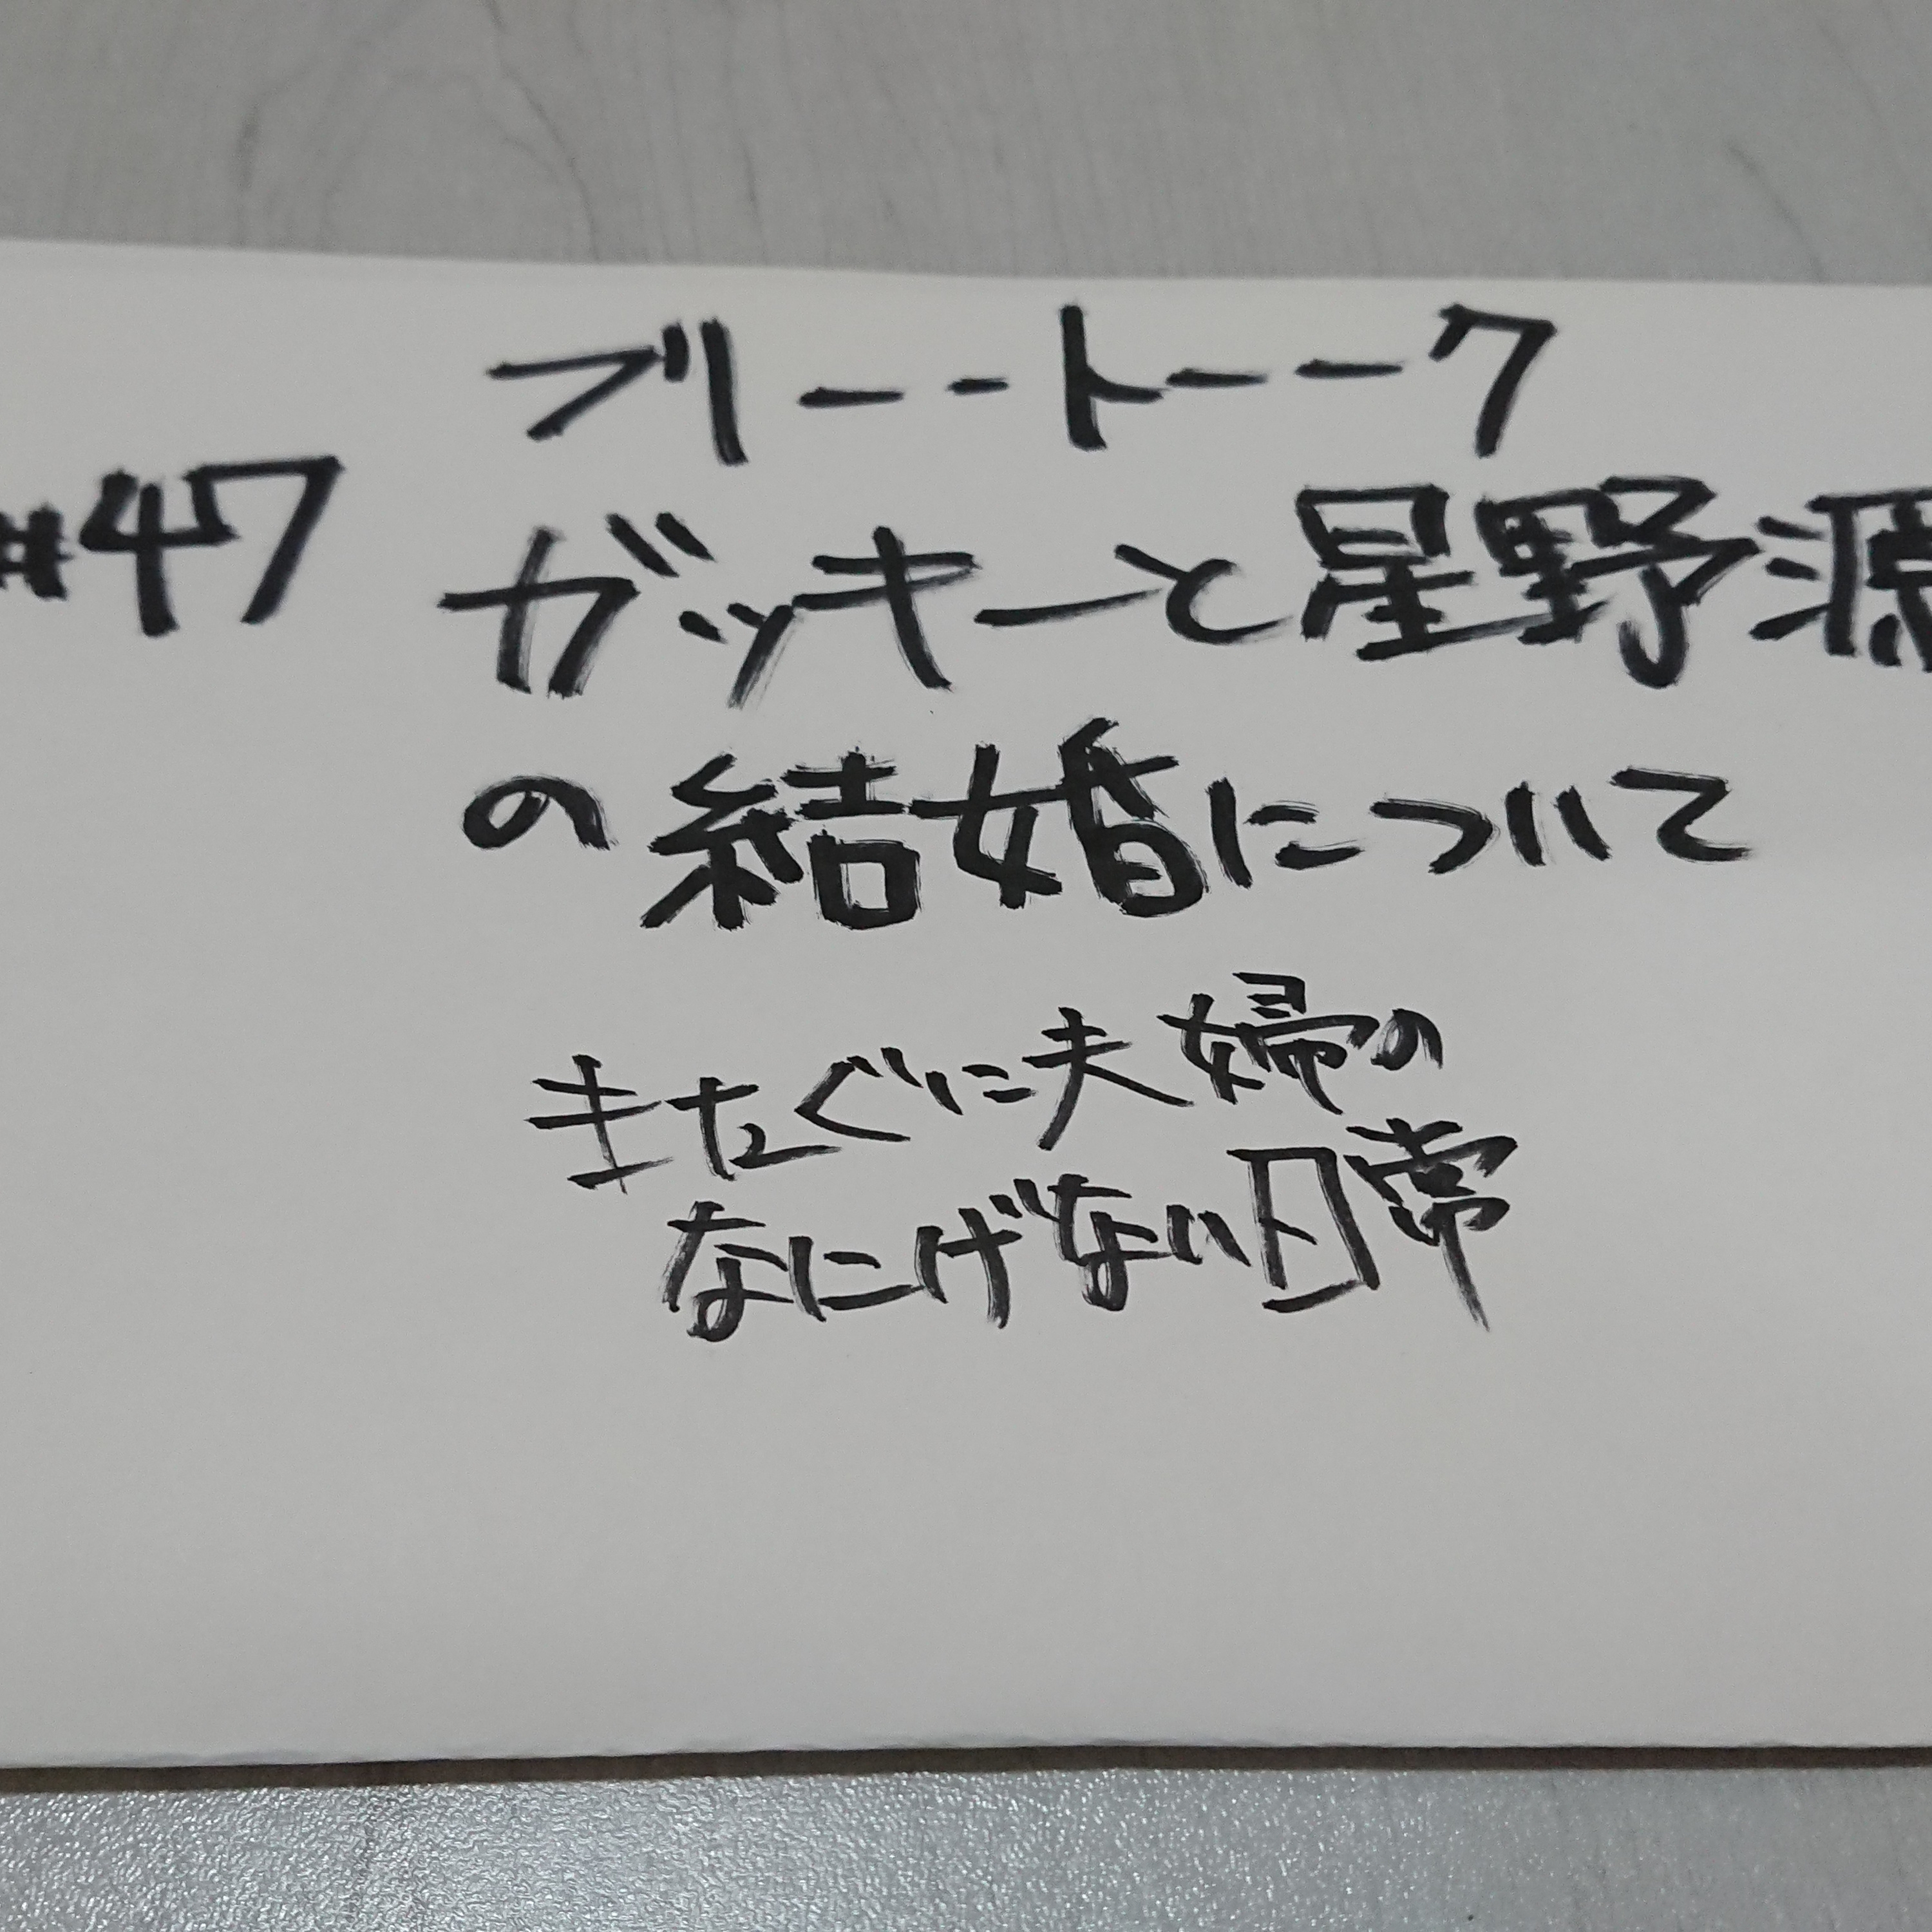 #47
フリーートーーク
ガッキーと星野源
の結婚について
きたぐに夫婦の
なにげない日常